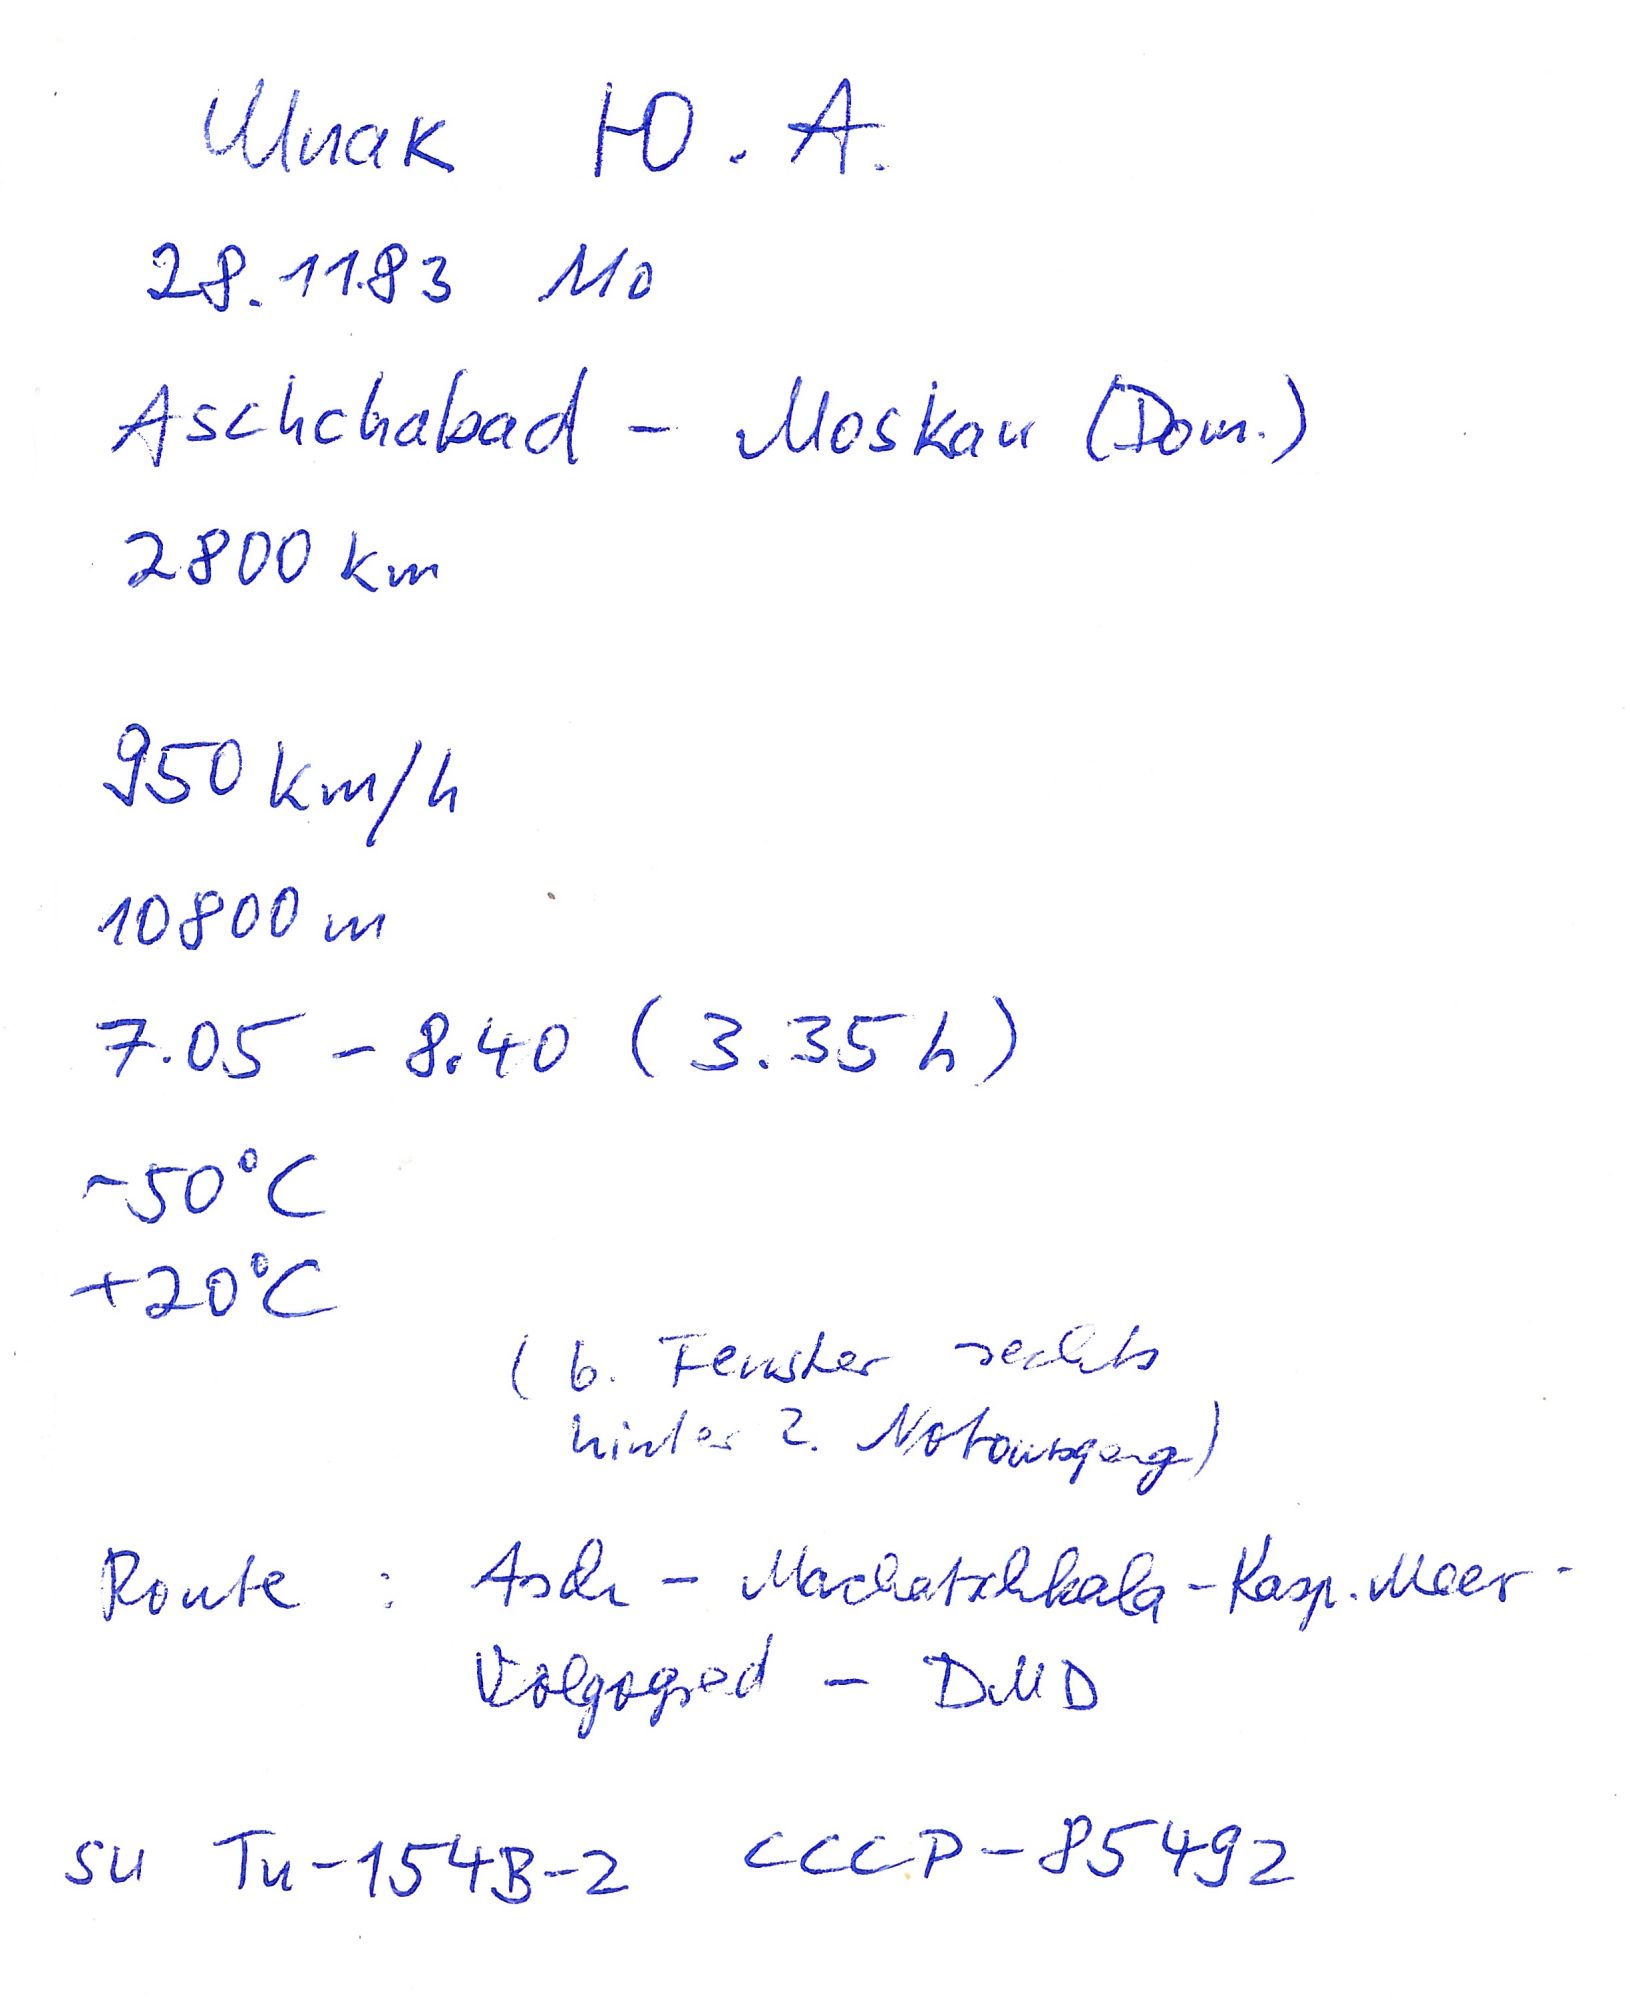 Шпак Ю.А.
28.11.83 Mo
Aschchabad - Moskau (Dom.)
2800 km
950 km/h
10800 m
7.05 - 8.40 (3.35 h)
-50°C
+20°C
(6. Fenster rechts
hinter 2. Notausgang)
Route: Asch - Machatschkala - Kasp. Meer -
Wolgograd - DMD
SU Tu-154B-2 CCCP-85492